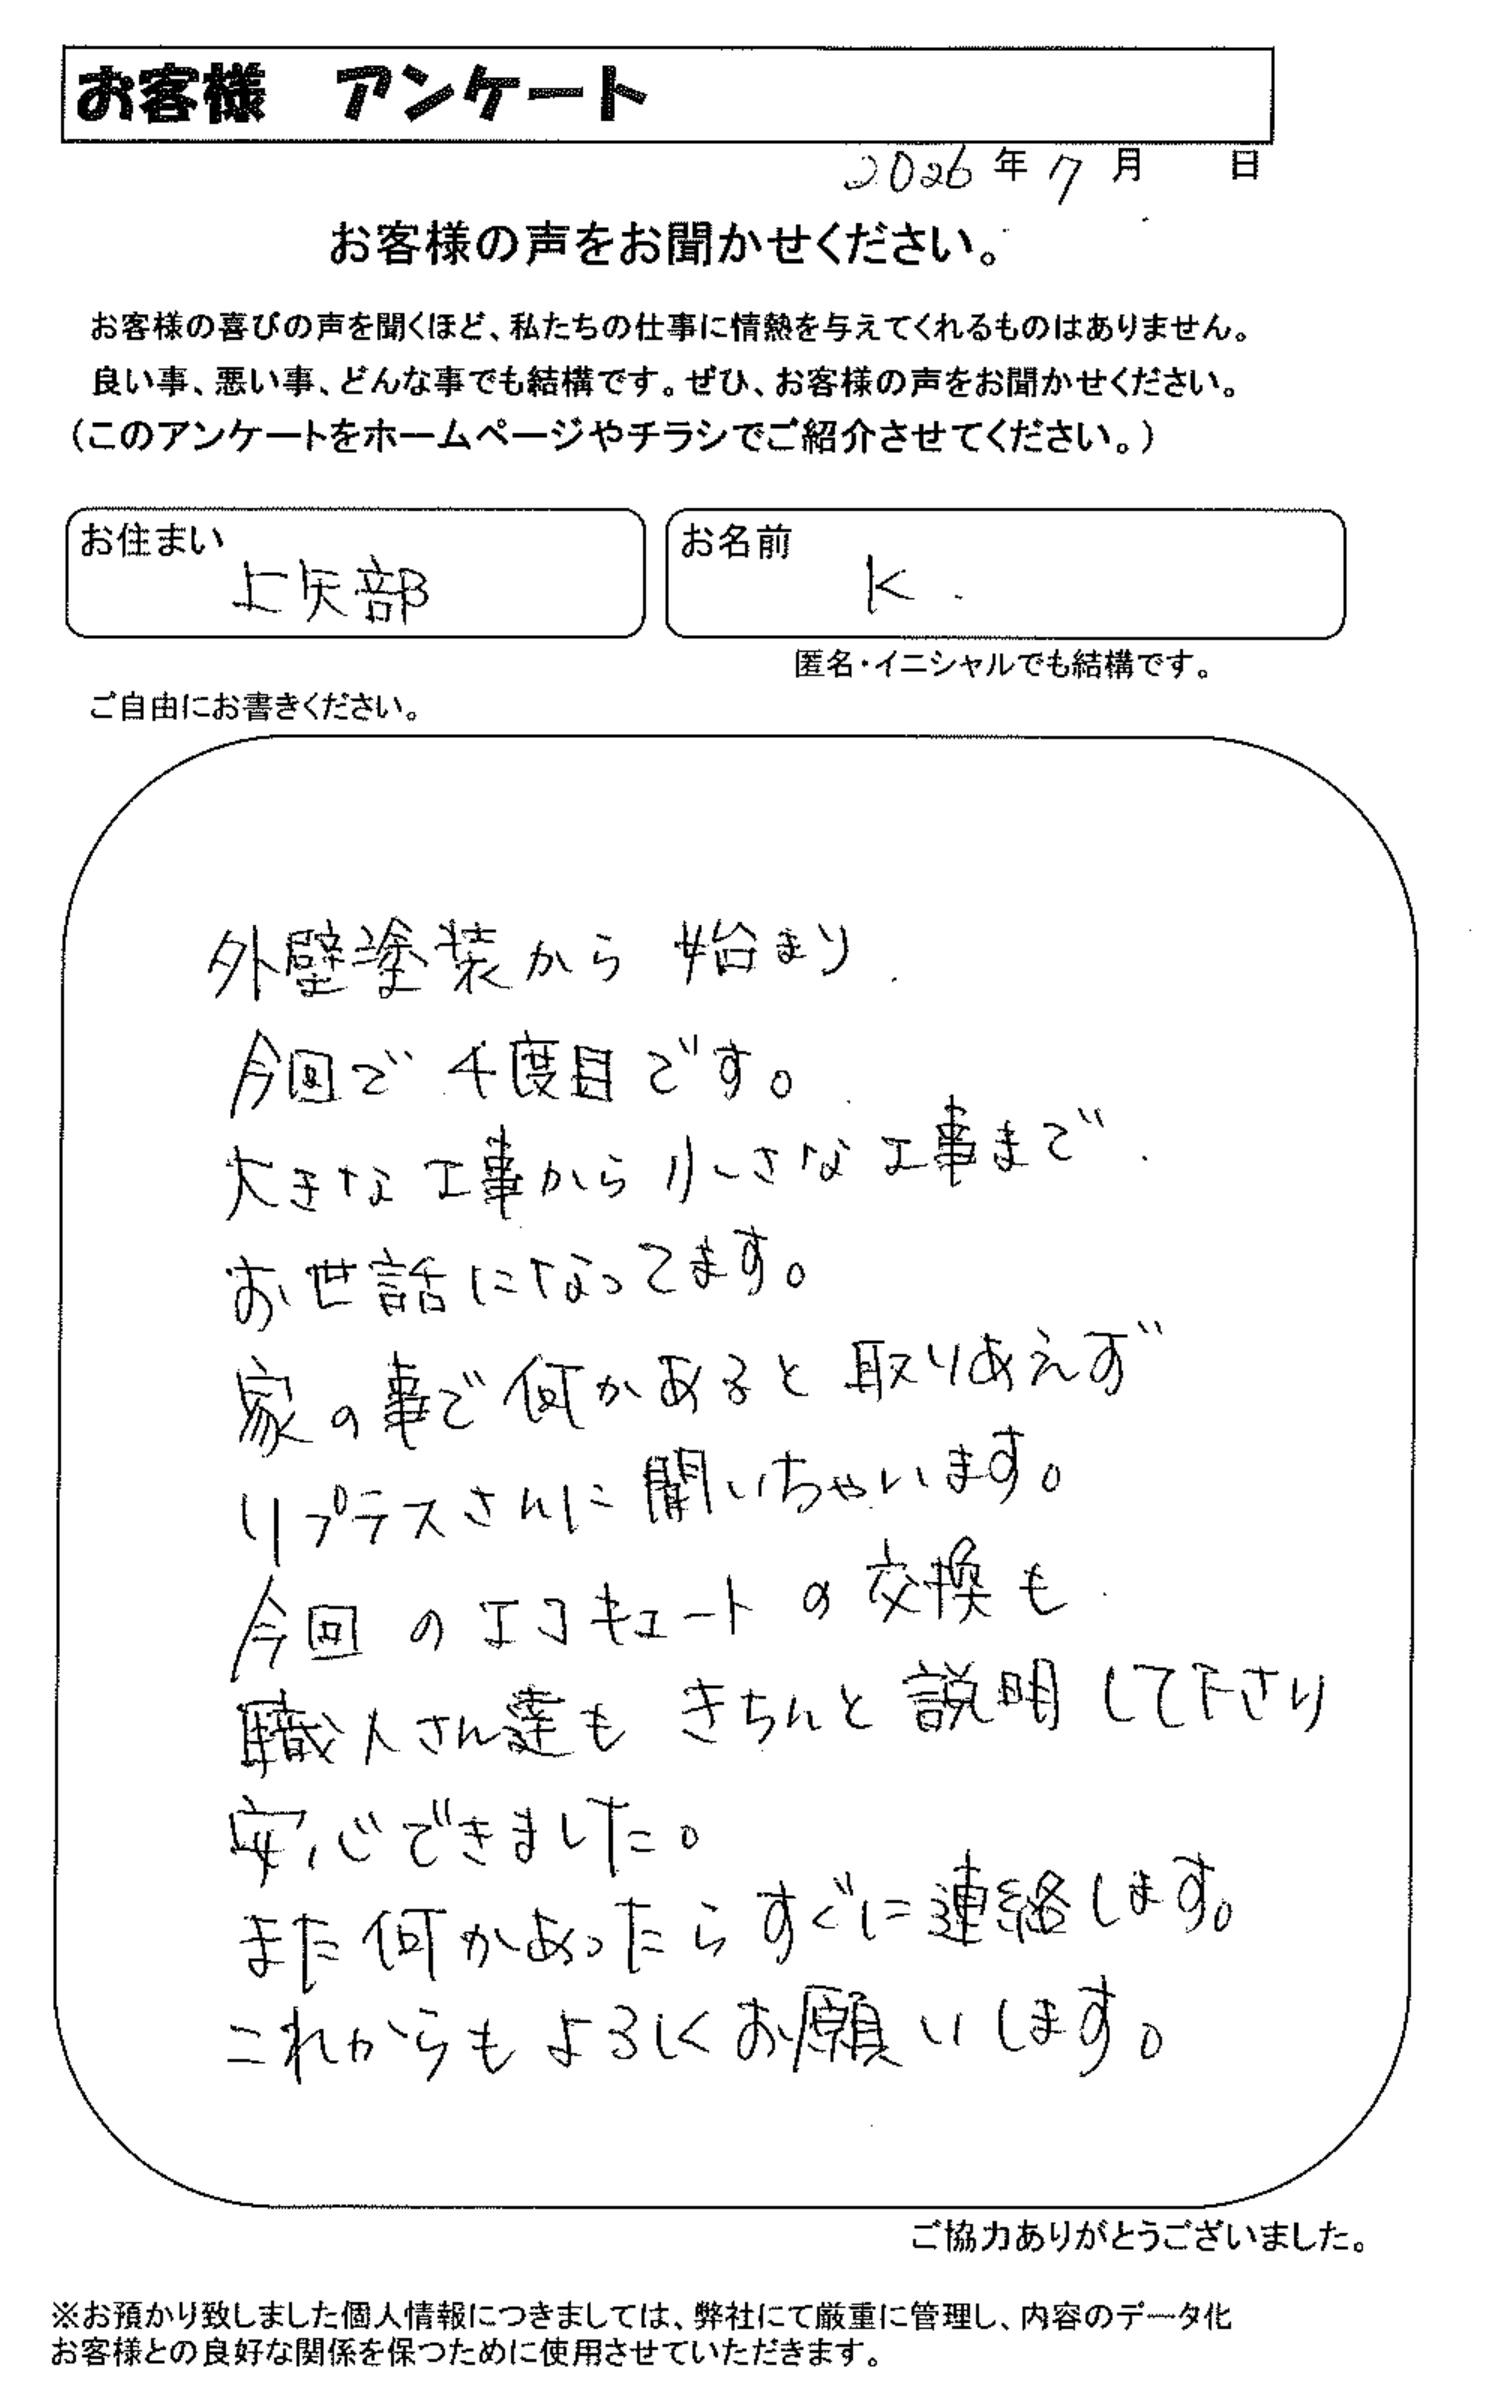 お客様　アンケート
2026年7月　日
お客様の声をお聞かせください。
お客様の喜びの声を聞くほど、私たちの仕事に情熱を与えてくれるものはありません。
良い事、悪い事、どんな事でも結構です。ぜひ、お客様の声をお聞かせください。
（このアンケートをホームページやチラシでご紹介させてください。）
お住まい　上矢部
お名前　K.
匿名・イニシャルでも結構です。
ご自由にお書きください。
外壁塗装から始まり
今回で4度目です。
大きな工事から小さな工事まで
お世話になってます。
家の事で何かあると取りあえず
リプラスさんに聞いちゃいます。
今回のエコキュートの交換も
職人さん達もきちんと説明して下さり
安心できました。
また何かあったらすぐに連絡します。
これからもよろしくお願いします。
ご協力ありがとうございました。
※お預かり致しました個人情報につきましては、弊社にて厳重に管理し、内容のデータ化
お客様との良好な関係を保つために使用させていただきます。